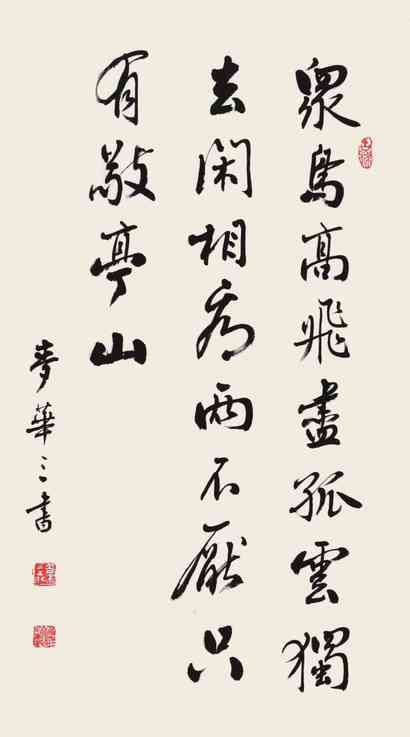 眾鳥高飛盡孤雲獨
去閑相看兩不厭只
有敬亭山
麥華三書